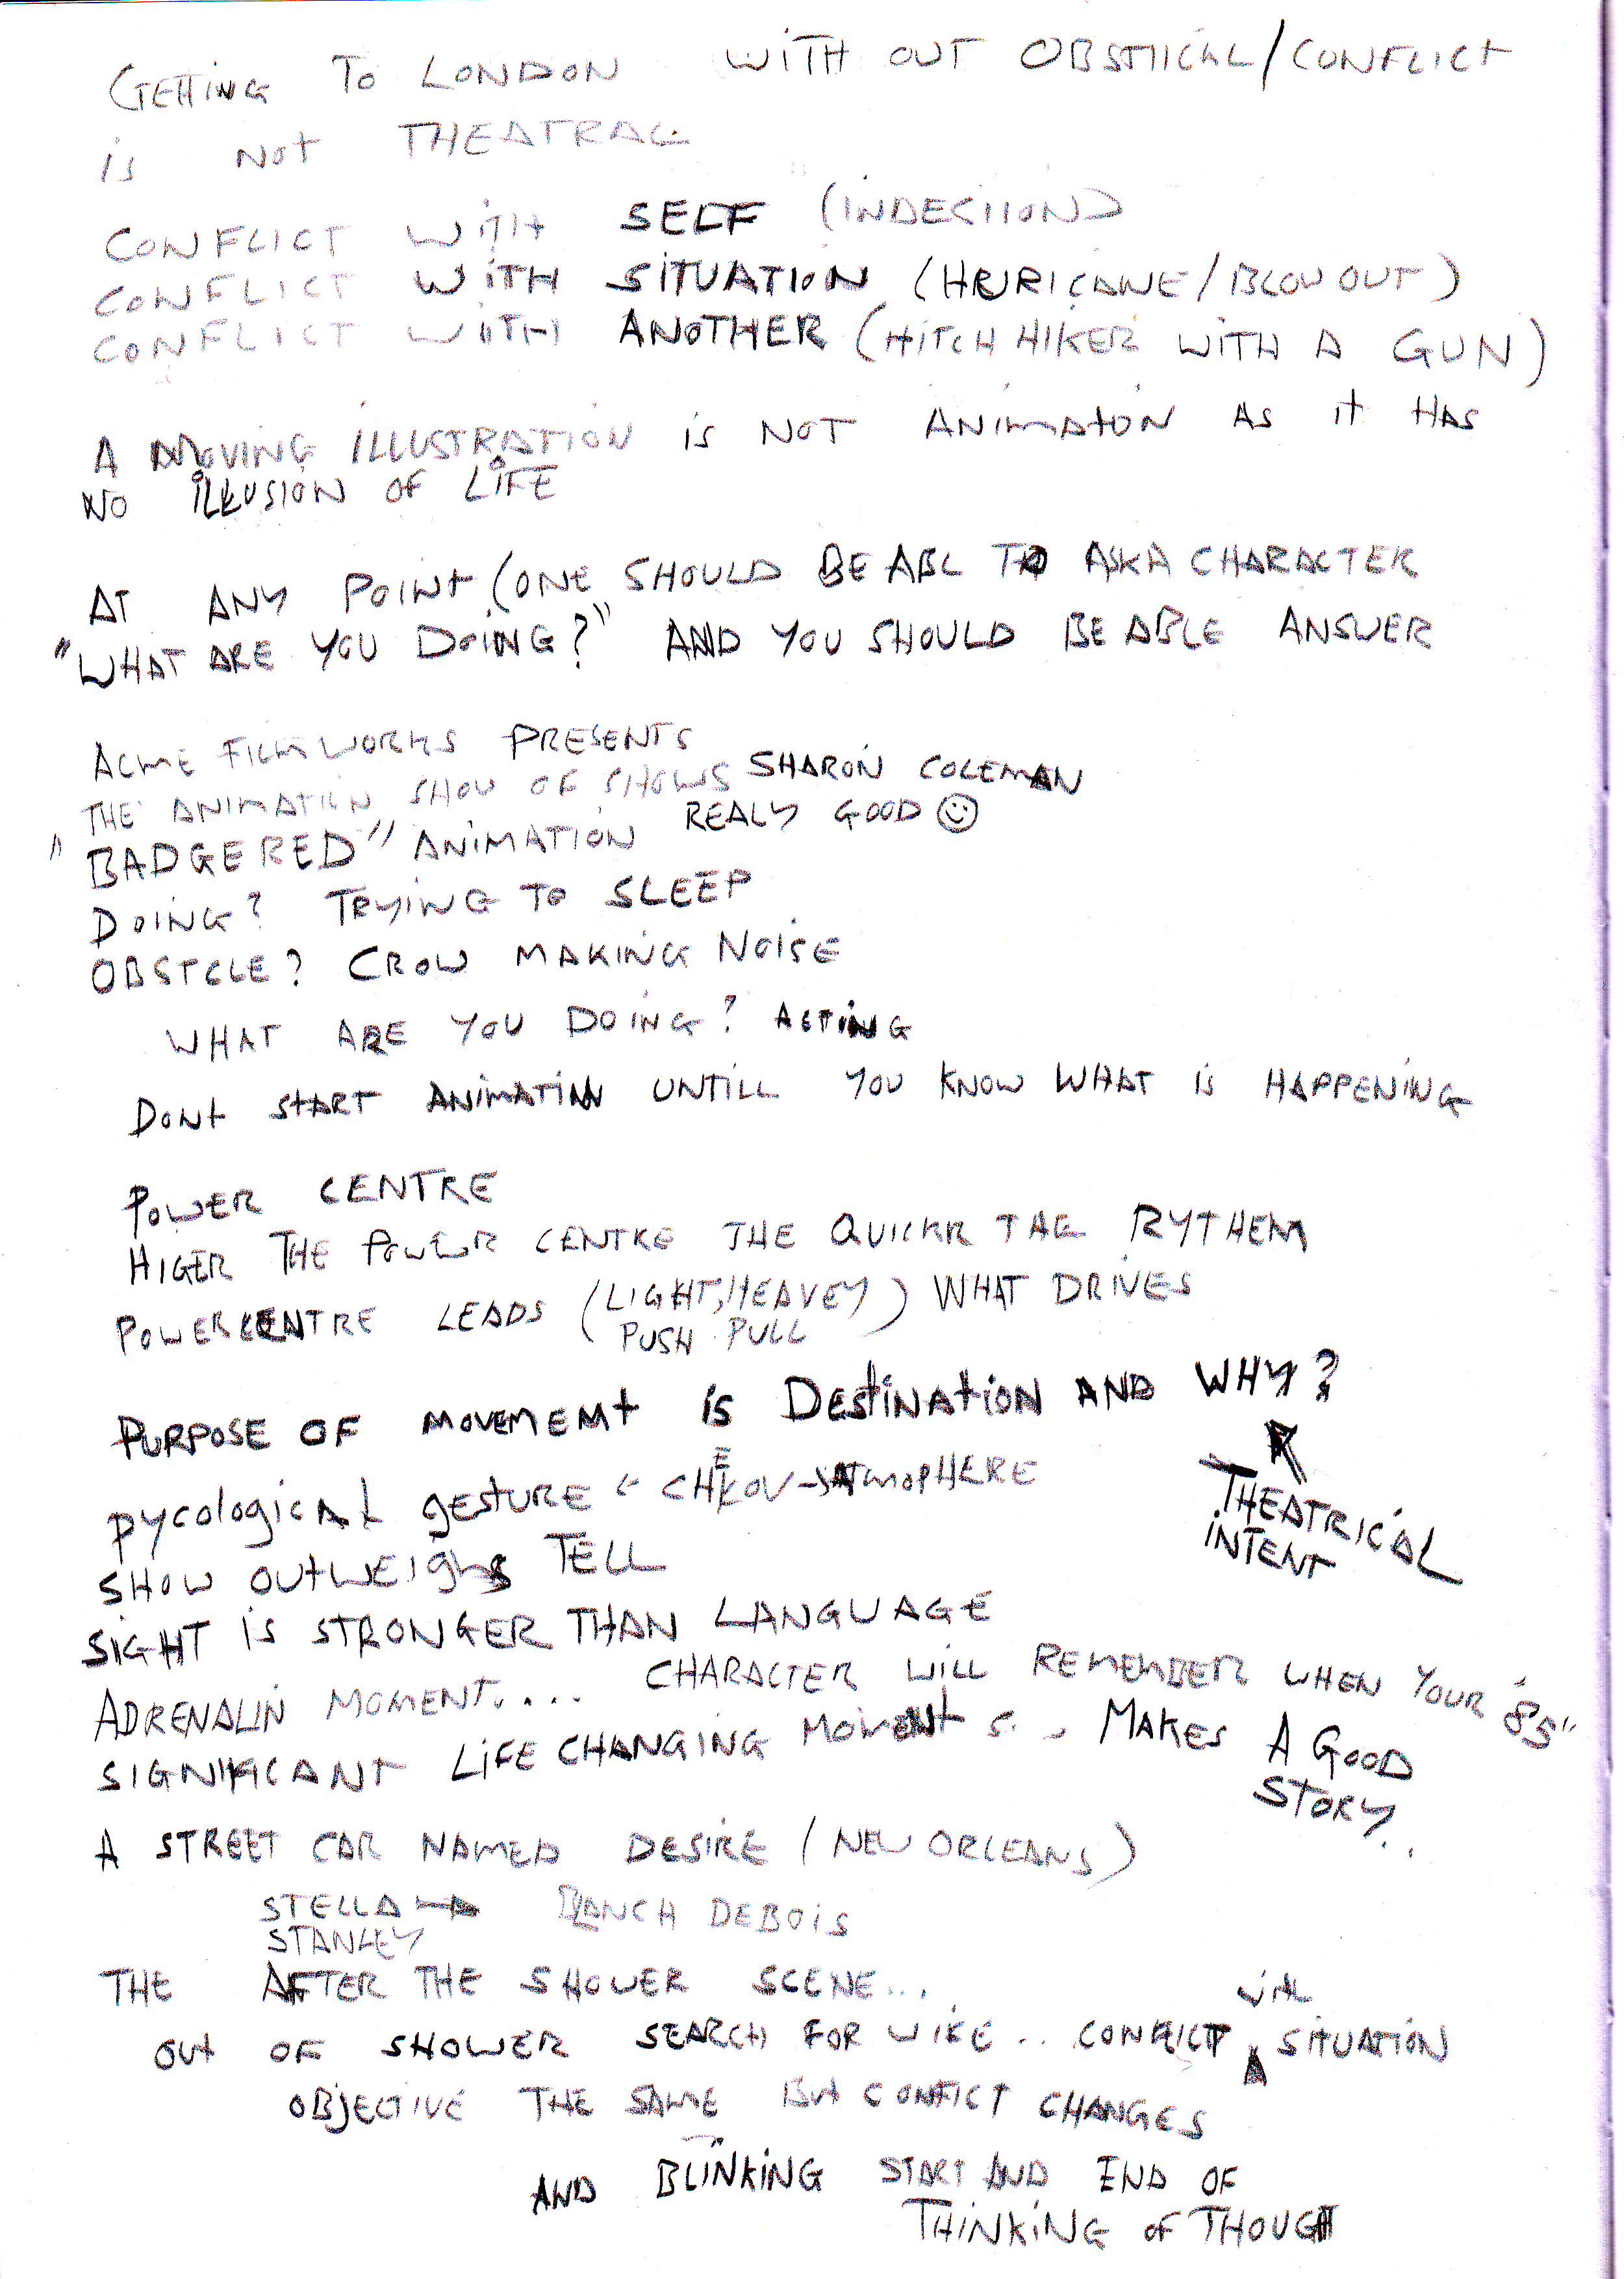 GETTING TO LONDON WITH OUT OBSTICAL/CONFLICT
IS NOT THEATRAL
CONFLICT WITH SELF (INDECIION)
CONFLICT WITH SITUATION (HRURICANE/BLOW OUT)
CONFLICT WITH ANOTHER (HITCH HIKER WITH A GUN)
A MOVING ILLUSTRATION IS NOT ANIMATION AS IT HAS
NO ILLUSION OF LIFE
AT ANY POINT (ONE SHOULD BE ABL TO ASK A CHARACTER
"WHAT ARE YOU DOING?" AND YOU SHOULD BE ABLE ANSWER
ACME FILM WORKS PRESENTS
THE ANIMATION SHOW OF SHOWS SHARON COLEMAN
"BADGERED" ANIMATION REALY GOOD
DOING? TRYING TO SLEEP
OBSTCLE? CROW MAKING NOISE
WHAT ARE YOU DOING? ACTING
DONT START ANIMATIN UNTILL YOU KNOW WHAT IS HAPPENING
POWER CENTRE
HIGER THE POWER CENTRE THE QUICKR THE RYTHEM
POWER CENTRE LEADS (LIGHT, HEAVEY) WHAT DRIVES
PUSH PULL
PURPOSE OF MOVEMEMT IS DESTINATION AND WHY?
THEATRICAL
INTENT
PYCOLOGICAL GESTURE CHEKOV → ATMOPHERE
SHOW OUTWEIGHS TELL
SIGHT IS STRONGER THAN LANGUAGE
ADRENALIN MOMENT.... CHARACTER WILL REMEMBER WHEN YOUR "85"
SIGNIFICANT LIFE CHANGING MOMENT S.. MAKES A GOOD
STORY..
A STREET CAR NAMED DESIRE (NEW ORLEANS)
STELLA → BLANCH DEBOIS
STANLEY
THE AFTER THE SHOWER SCENE...
OUT OF SHOWER SEARCH FOR WIFE.. CONFLICT WITH SITUATION
OBJECTIVE THE SAME BUT CONFICT CHANGES
AND BLINKING START AND END OF
THINKING OF THOUGHT